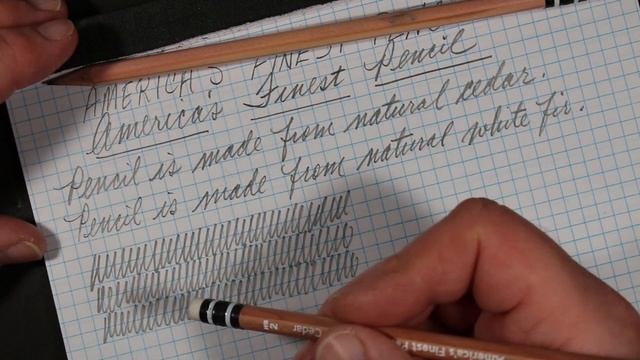 AMERICA'S FINEST
America's Finest Pencil
Pencil is made from natural cedar.
Pencil is made from natural white fir.
America's Finest
Cedar
No 2